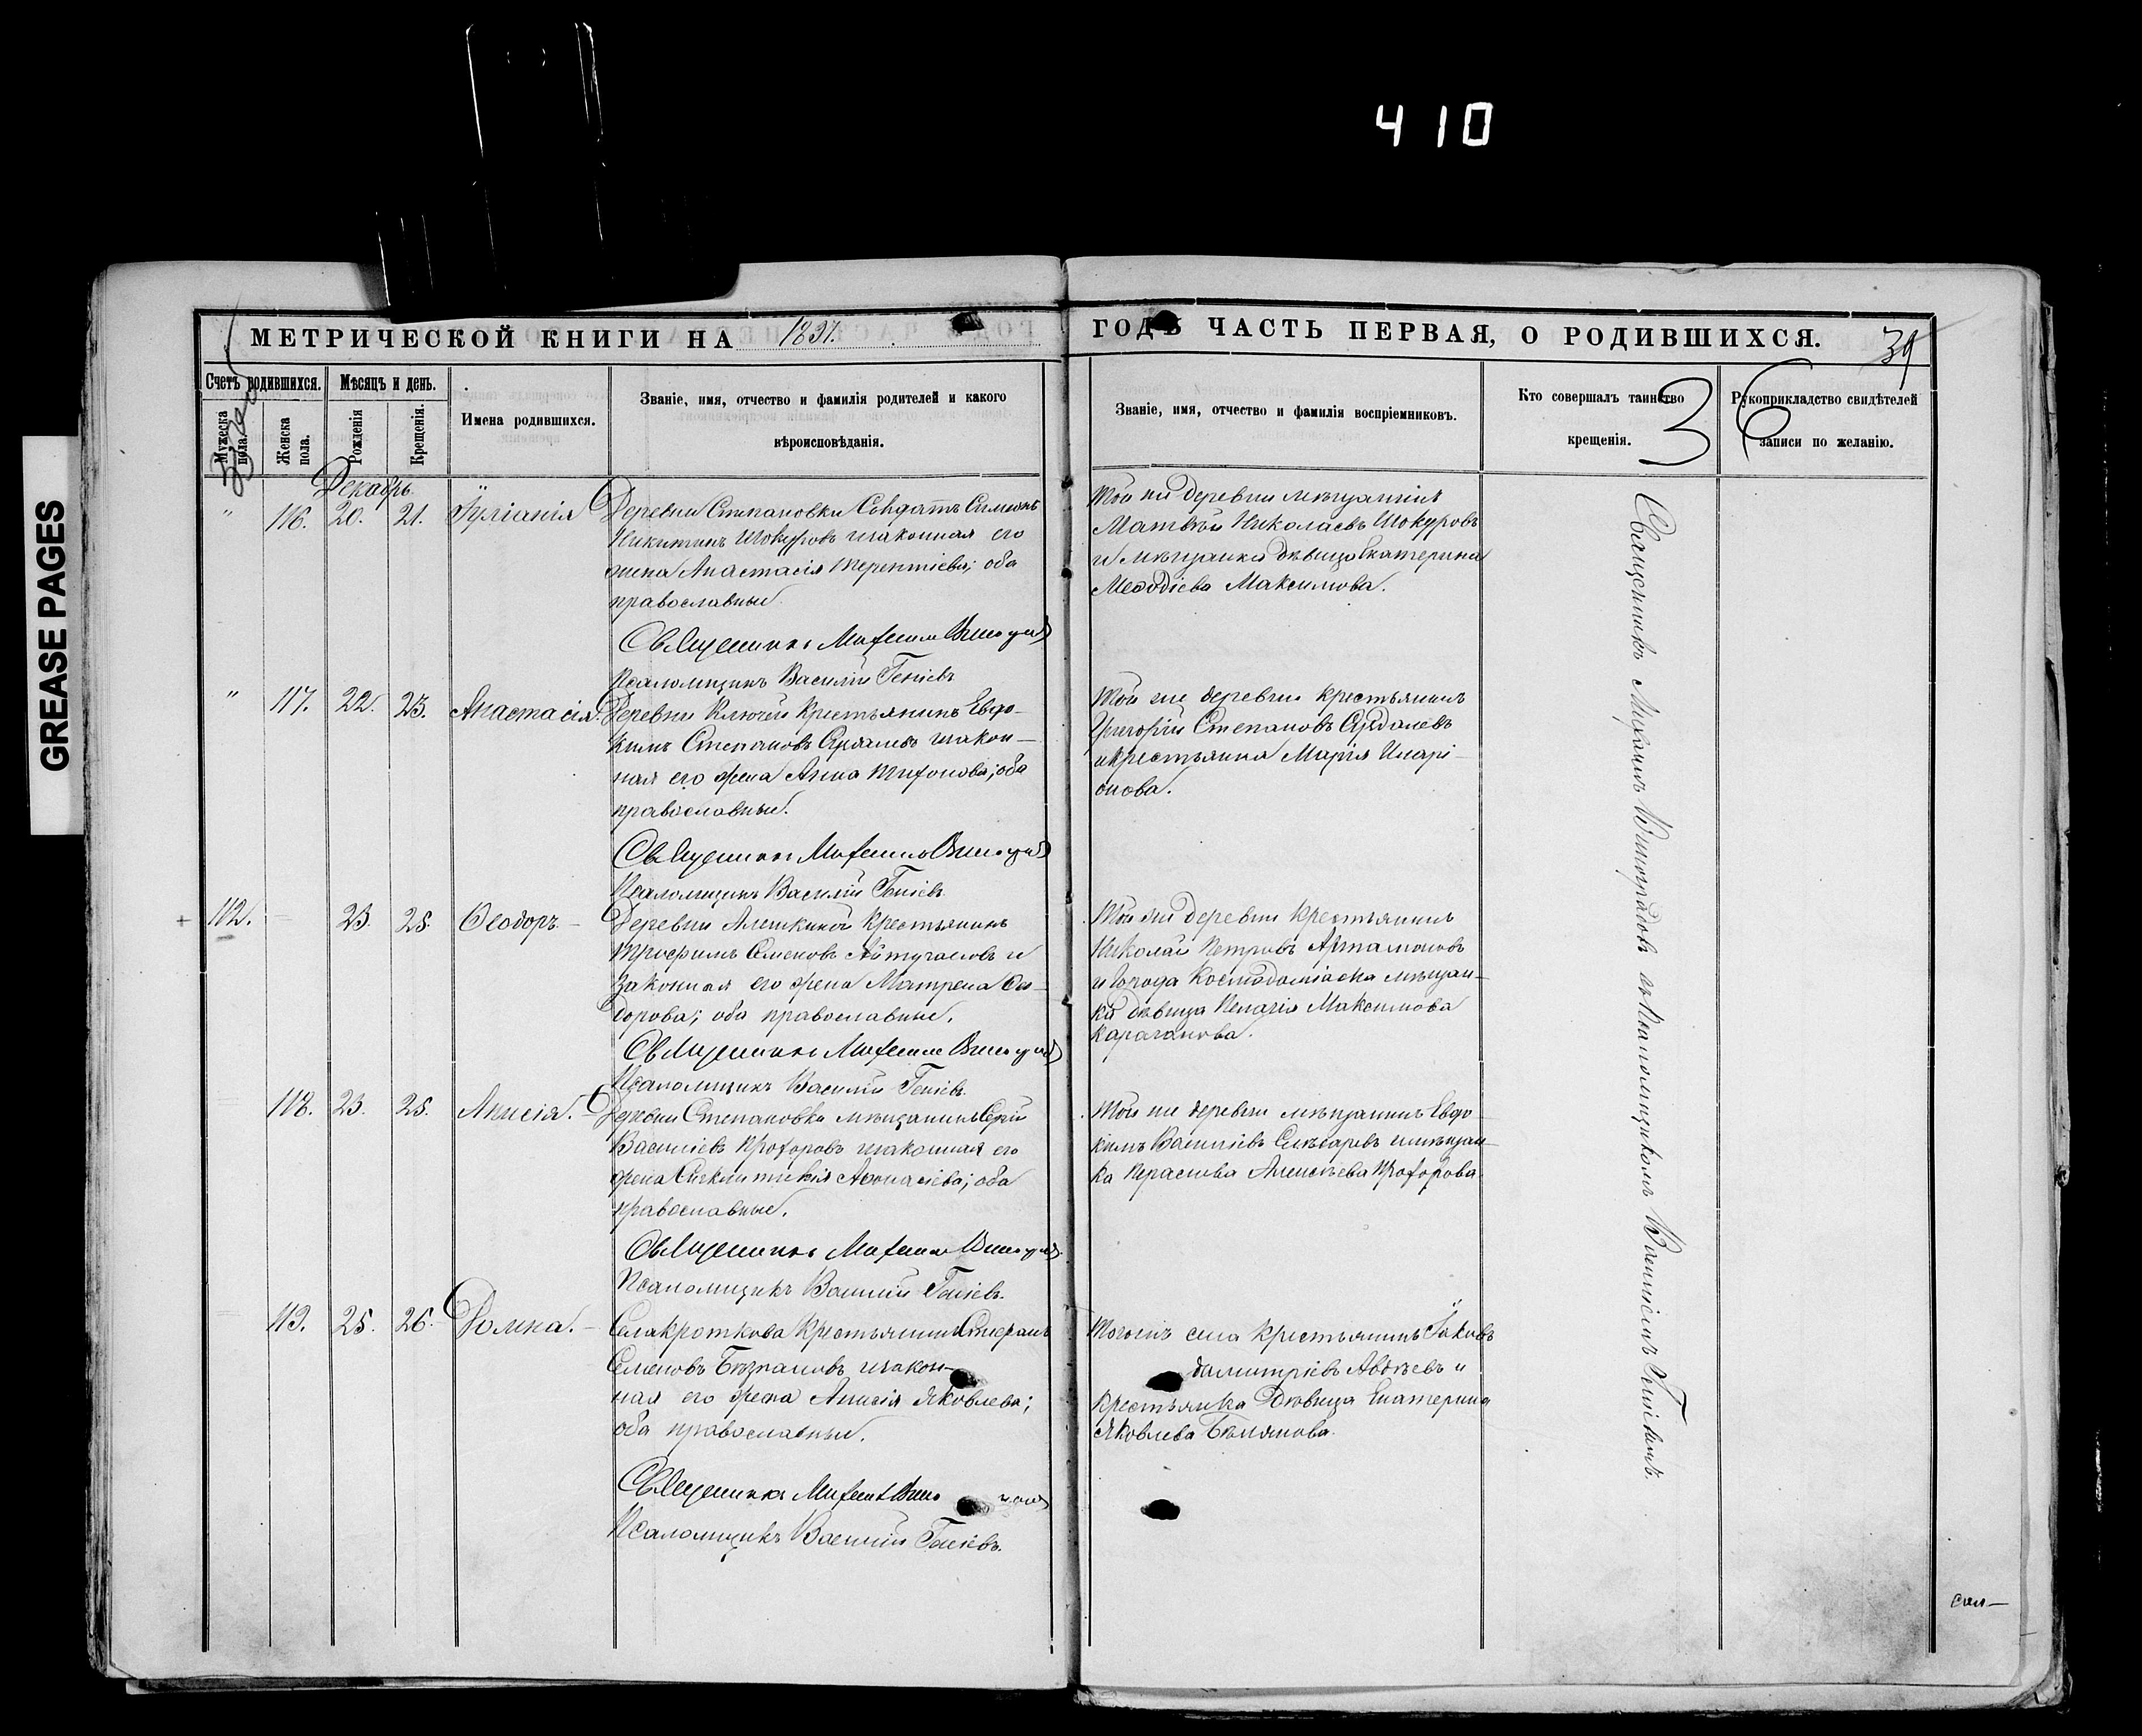 410
GREASE PAGES
МЕТРИЧЕСКОЙ КНИГИ НА 1891.
ГОДЪ ЧАСТЬ ПЕРВАЯ, О РОДИВШИХСЯ.
39
Счетъ родившихся.
Мѣсяцъ и день.
Мужеска пола.
Женска пола.
Рожденія
Крещенія.
Имена родившихся.
Званіе, имя, отчество и фамилія родителей и какого
вѣроисповѣданія.
Званіе, имя, отчество и фамилія воспріемниковъ.
Кто совершалъ таинство
крещенія.
Рукоприкладство свидѣтелей
записи по желанію.
Декабрь.
" 116. 20. 21. Іуліанія
Деревни Степановки Солдатъ Симеонъ
Никитинъ Шокуровъ и законная его
жена Анастасія Терентіева; оба
православные.
Священникъ Михаилъ Виноградовъ
Псаломщикъ Василій
Той же деревни мѣщанинъ
Матвѣй Николаевъ Шокуровъ
и мѣщанка дѣвица Екатерина
Меѳодіева Максимова.
" 117. 22. 23. Анастасія.
Деревни Ключей Крестьянинъ Евдо-
кимъ Степановъ и закон-
ная его жена Анна оба
православные.
Священникъ Михаилъ Виноградовъ
Псаломщикъ Василій
Той же деревни крестьянинъ
Григорій Степановъ
и крестьянка Марія Иларі-
онова.
+ 112. 23. 25. Ѳеодоръ.
Деревни Алешкиной Крестьянинъ
Трофимъ Семеновъ и
законная его жена Матрена Ѳео-
дорова; оба православные.
Священникъ Михаилъ Виноградовъ
Псаломщикъ Василій
Той же деревни Крестьянинъ
Николай Петровъ Артамоновъ
и города мѣщан-
ка дѣвица Пелагія Максимова
Караганова.
118. 23. 25. Анисія.
Деревни Степановки мѣщанинъ
Василіевъ Прохоровъ и законная его
жена Синклитикія Аѳонасіева; оба
православные.
Священникъ Михаилъ Виноградовъ
Псаломщикъ Василій
Той же деревни мѣщанинъ Евдо-
кимъ Василіевъ и мѣщан-
ка Алексѣева Прохорова.
113. 25. 26. Домна.
Села Кроткова Крестьянинъ Стефанъ
Семеновъ и закон-
ная его жена Анисія Яковлева;
оба православные.
Священникъ Михаилъ
Псаломщикъ Василій
Того же села крестьянинъ Іаковъ
Димитріевъ Авдѣевъ и
крестьянка Дѣвица Екатерина
Яковлева
Священникъ Михаилъ Виноградовъ съ Псаломщикомъ Василіемъ